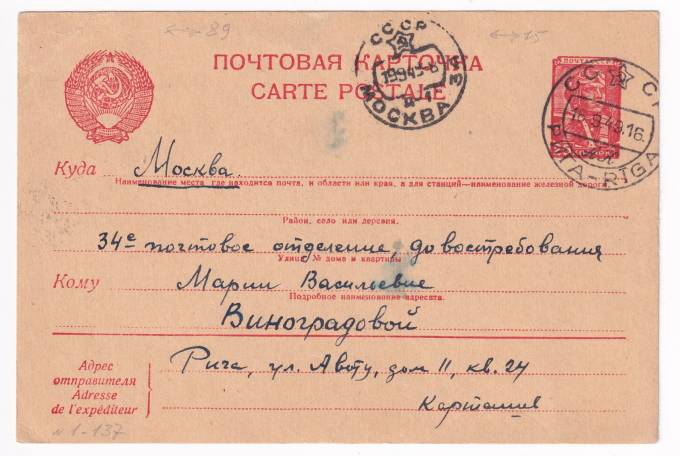 89
15
ПОЧТОВАЯ КАРТОЧКА
CARTE POSTALE
СССР
МОСКВА
РИГА-RIGA
Куда Москва.
Наименование места, где находится почта, и области или края, а для станций—наименование железной дороги
Район, село или деревня.
34е почтовое отделение, до востребования
Улица, № дома и квартиры
Кому Марии Васильевне
Подробное наименование адресата.
Виноградовой
Адрес
отправителя
Adresse
de l'expéditeur
Рига, ул. Авоту, дом 11, кв. 24
N 1-137